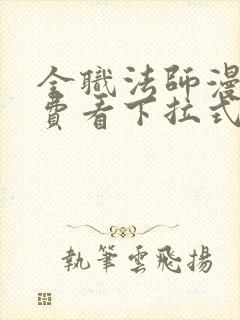 全職法師漫
費看下拉式
執筆雲飛揚